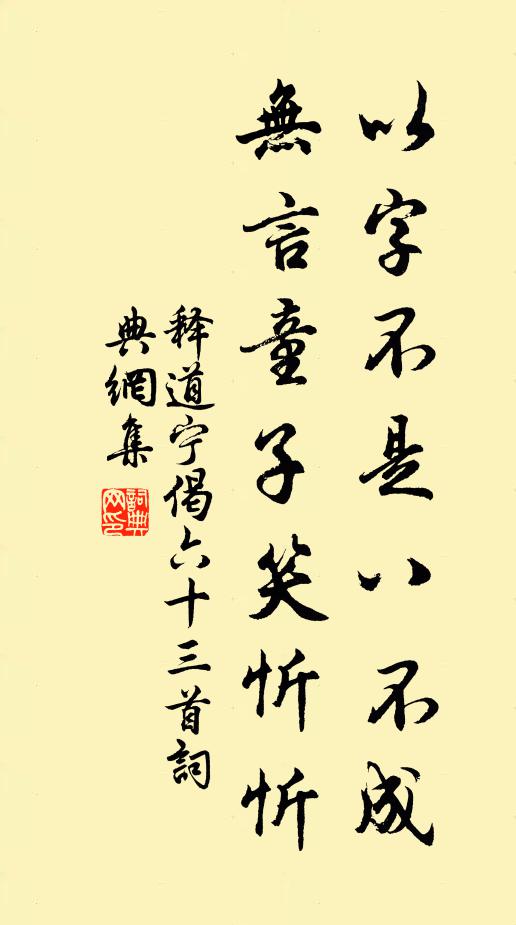 以字不是八不成
無言童子笑忻忻
释道宁偈六十三首詞
典網集
詞典
网印